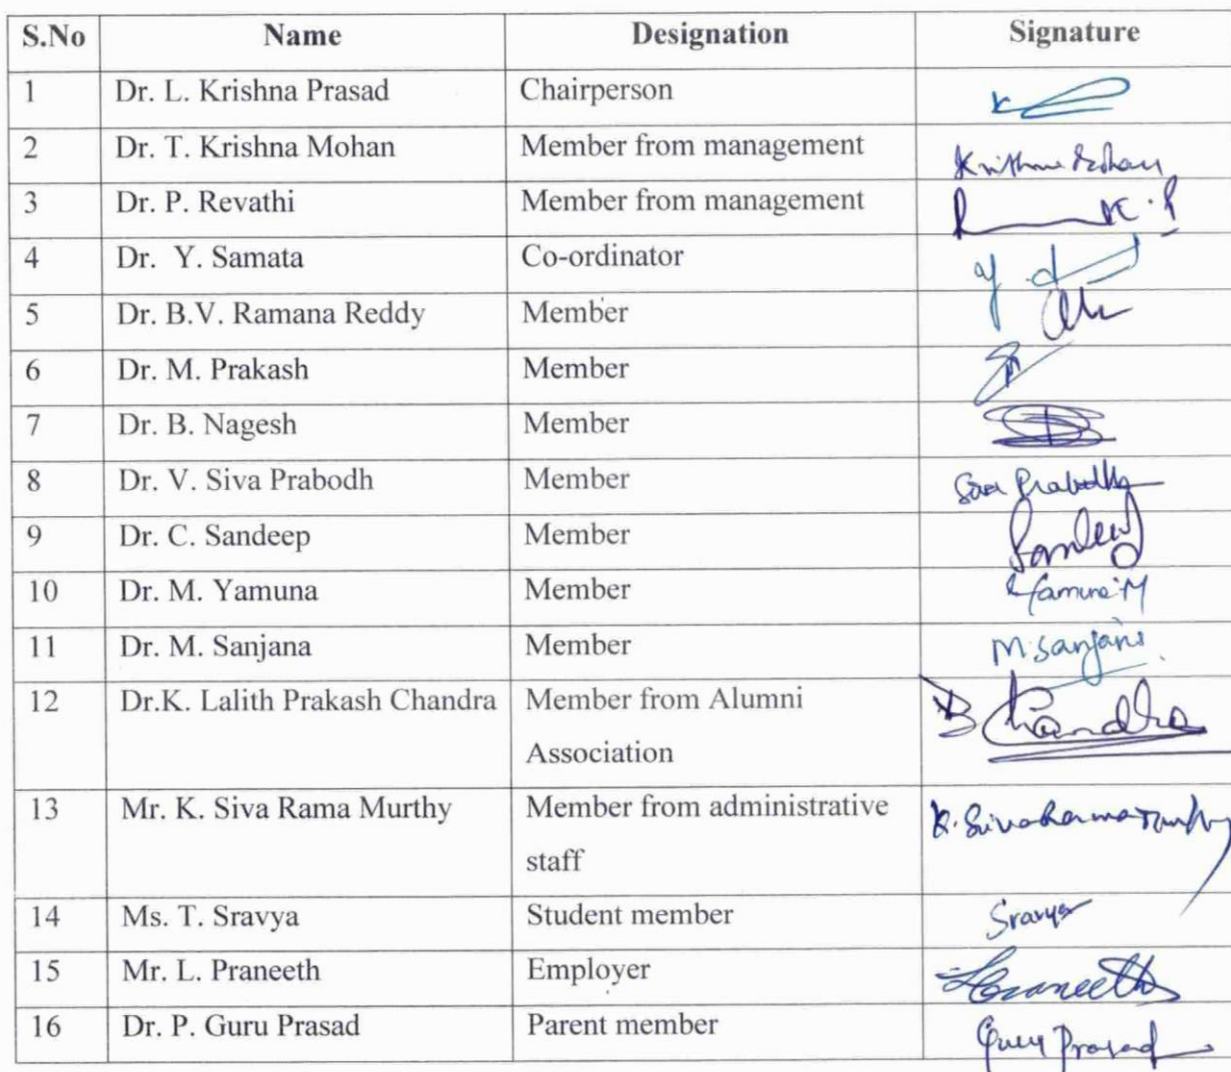 S.No Name Designation Signature
1 Dr. L. Krishna Prasad Chairperson
2 Dr. T. Krishna Mohan Member from management Krishna Mohan
3 Dr. P. Revathi Member from management
4 Dr. Y. Samata Co-ordinator
5 Dr. B.V. Ramana Reddy Member
6 Dr. M. Prakash Member
7 Dr. B. Nagesh Member
8 Dr. V. Siva Prabodh Member Siva Prabodh
9 Dr. C. Sandeep Member Sandeep
10 Dr. M. Yamuna Member Yamuna M
11 Dr. M. Sanjana Member M. Sanjana
12 Dr.K. Lalith Prakash Chandra Member from Alumni Chandra
Association
13 Mr. K. Siva Rama Murthy Member from administrative K. Sivaramamurthy
staff
14 Ms. T. Sravya Student member Sravya
15 Mr. L. Praneeth Employer Praneeth
16 Dr. P. Guru Prasad Parent member Guru Prasad